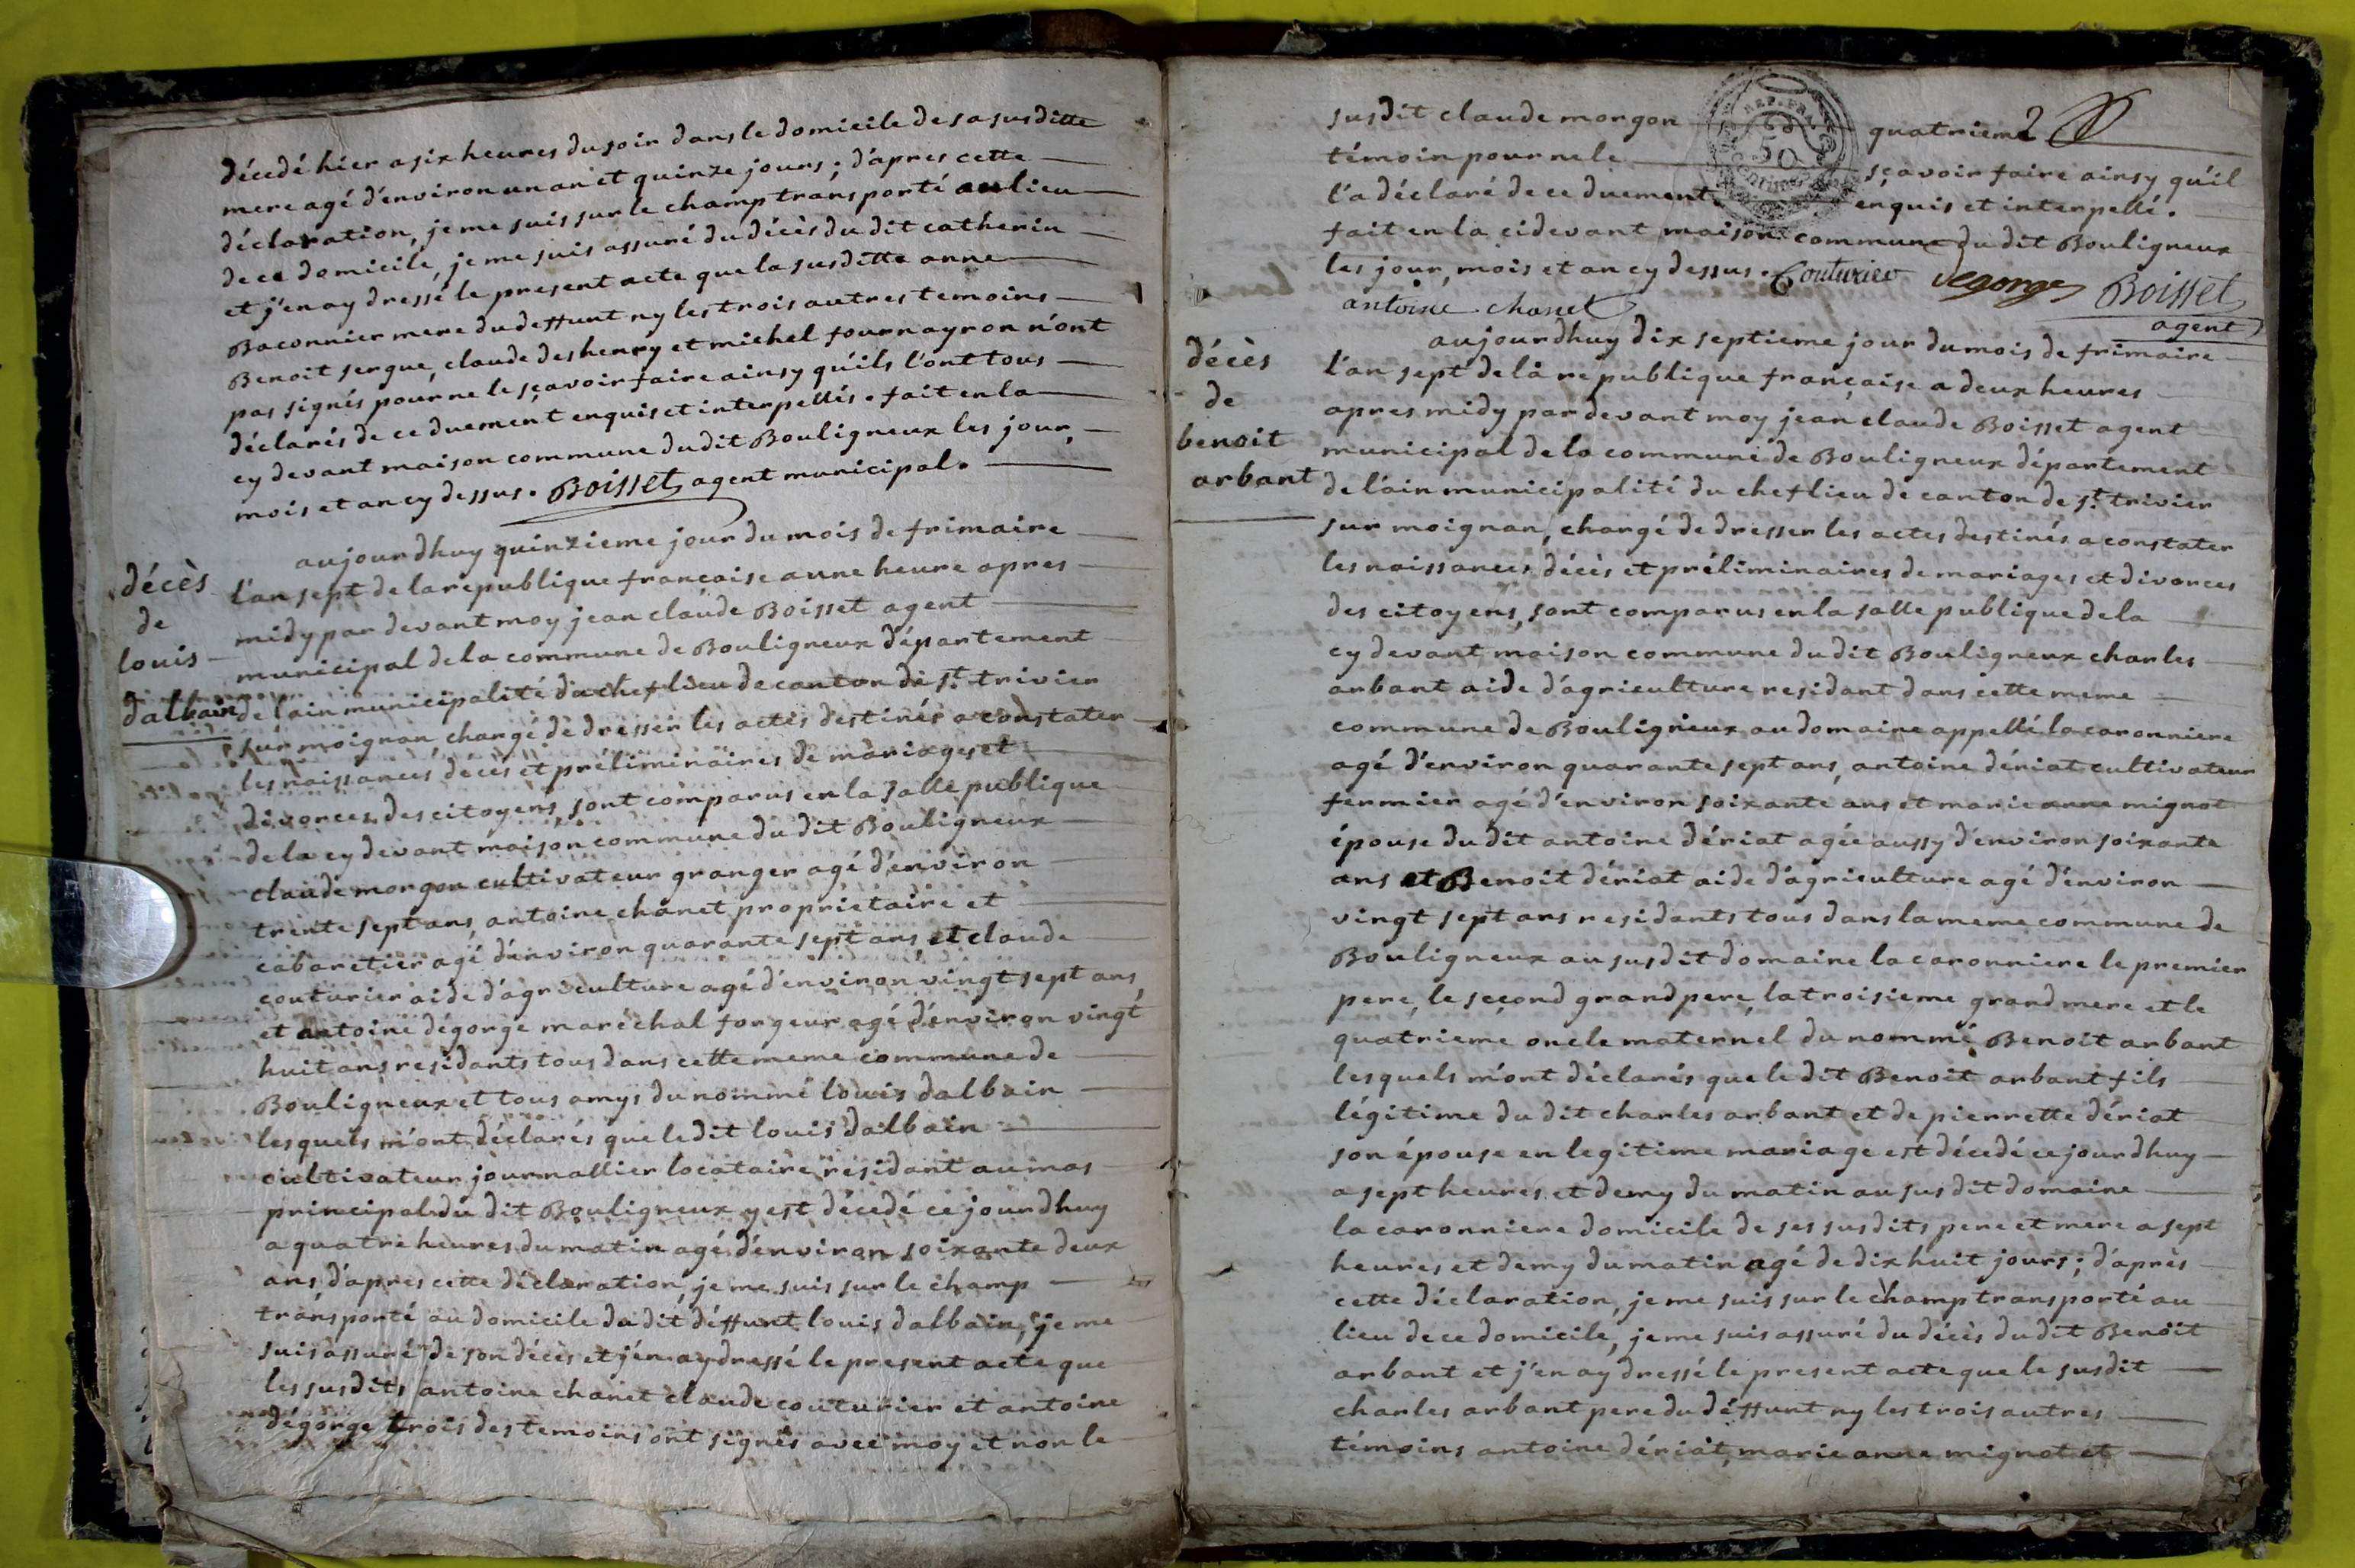 décedé hier a six heures du soir dans le domicile de sa susditte
mere agé d'environ un an et quinze jours ; d'apres cette
déclaration, je me suis sur le champ transporté au lieu
de ce domicile, je me suis assuré du décès du dit catherin
et j'en ay dressé le present acte que la susditte anne
Baconnier mere du deffunt ny les trois autres temoins
Benoit sergue, claude deshenry et michel fournayron n'ont
pas signés pour ne le sçavoir faire ainsy qu'ils l'ont tous
déclarés de ce duement enquis et interpellés. fait en la
cy devant maison commune du dit Bouligneux les jour,
mois et an cy dessus. Boisset agent municipal.
décès
de
louis
dalbain
aujourdhuy quinzieme jour du mois de frimaire
l'an sept de la republique francaise a une heure apres
midy par devant moy jean claude Boisset agent
municipal de la commune de Bouligneux département
de l'ain municipalité du chef lieu de canton de st. trivier
sur moignan, chargé de dresser les actes destinés a constater
les naissances décès et préliminaires de mariages et
divorces des citoyens, sont comparus en la salle publique
de la cy devant maison commune du dit Bouligneux
claude morgon cultivateur granger agé d'environ
trente sept ans, antoine chanet propriétaire et
cabaretier agé d'environ quarante sept ans, et claude
couturier aide d'agriculture agé d'environ vingt sept ans,
et antoine dégorge maréchal forgeur agé d'environ vingt
huit ans residants tous dans cette meme commune de
Bouligneux et tous amys du nommé louis dalbain
lesquels m'ont déclarés que le dit louis dalbain
cultivateur journallier locataire residant au mas
principal du dit Bouligneux y est décedé ce jourdhuy
a quatre heures du matin agé d'environ soixante deux
ans, d'apres cette déclaration, je me suis sur le champ
transporté au domicile du dit déffunt louis dalbain, je me
suis assuré de son décès et j'en ay dressé le present acte que
les susdits antoine chanet claude couturier et antoine
dégorge trois des temoins ont signés avec moy et non le
susdit claude morgon quatrieme 2
témoin pour ne le sçavoir faire ainsy qu'il
l'a déclaré de ce duement enquis et interpellé.
REP. FRA.
50
centimes
fait en la cidevant maison commune du dit Bouligneux
les jour, mois et an cy dessus. Couturier degorge Boisset
antoine chanet agent
décès
de
benoit
arbant
aujourdhuy dix septieme jour du mois de frimaire
l'an sept de la republique française a deux heures
apres midy par devant moy jean claude Boisset agent
municipal de la commune de Bouligneux département
de l'ain municipalité du chef lieu de canton de st. trivier
sur moignan, chargé de dresser les actes destinés a constater
les naissances décès et préliminaires de mariages et divorces
des citoyens, sont comparus en la salle publique de la
cy devant maison commune du dit Bouligneux charles
arbant aide d'agriculture residant dans cette meme
commune de Bouligneux au domaine appellé la caronniere
agé d'environ quarante sept ans, antoine dériat cultivateur
fermier agé d'environ soixante ans et marie anne mignot
épouse du dit antoine dériat agée aussy d'environ soixante
ans et Benoit dériat aide d'agriculture agé d'environ
vingt sept ans residants tous dans la meme commune de
Bouligneux au susdit domaine la caronniere le premier
pere, le second grand pere, la troisieme grand mere et le
quatrieme oncle maternel du nommé Benoit arbant
lesquels m'ont déclarés que le dit Benoit arbant fils
légitime du dit charles arbant et de pierrette dériat
son épouse en legitime mariage est décedé ce jourdhuy
a sept heures et demy du matin au susdit domaine
la caronniere domicile de ses susdits pere et mere a sept
heures et demy du matin agé de dix huit jours ; d'après
cette déclaration, je me suis sur le champ transporté au
lieu de ce domicile, je me suis assuré du décès du dit Benoit
arbant et j'en ay dressé le present acte que le susdit
charles arbant pere du déffunt ny les trois autres
témoins antoine dériat, marie anne mignot et